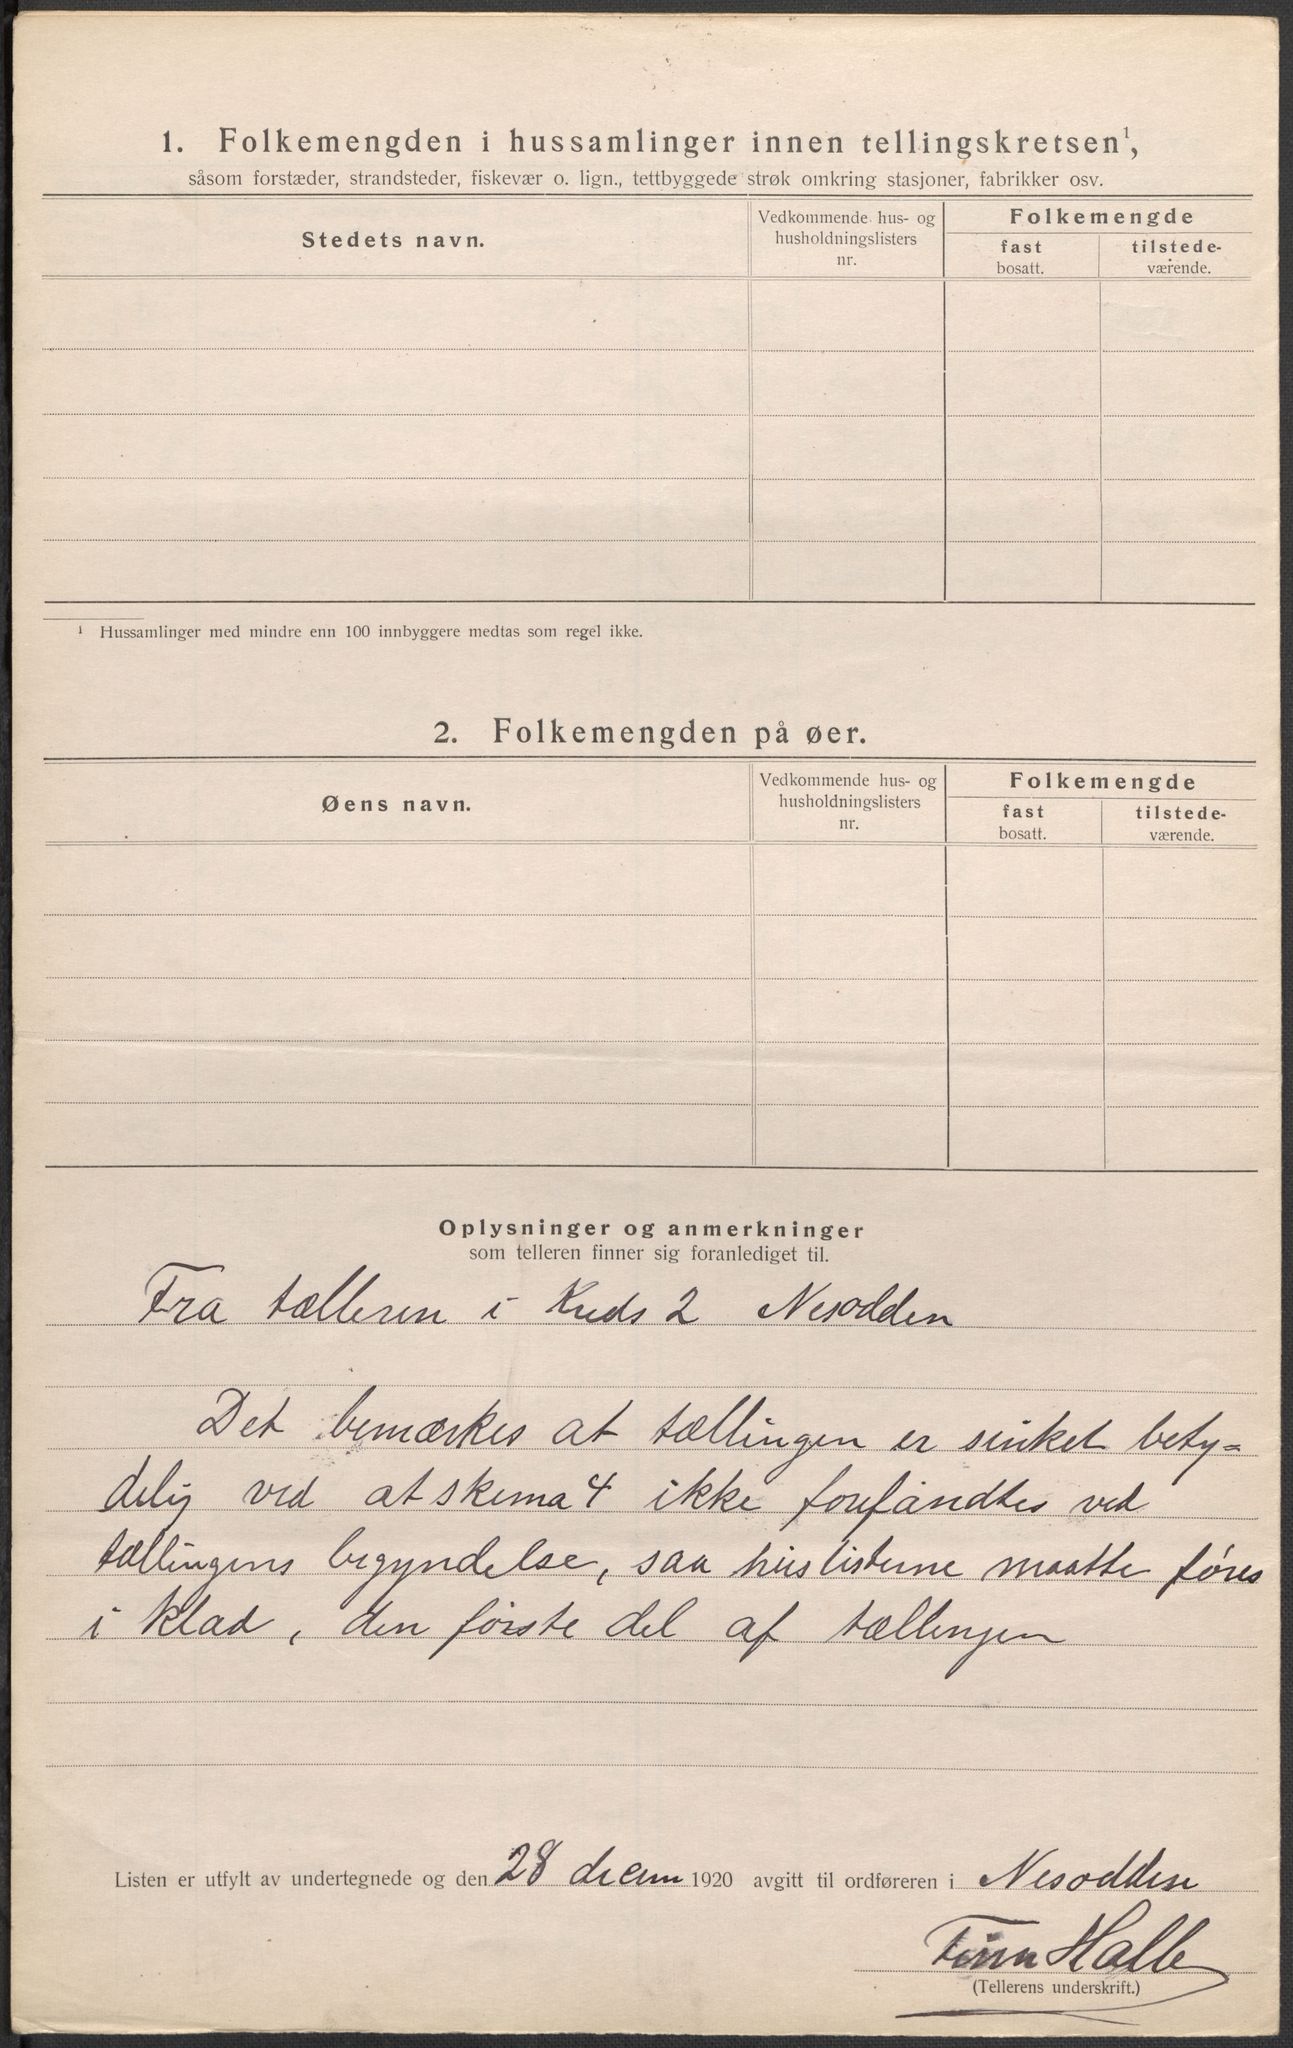 1. Folkemengden i hussamlinger innen tellingskretsen¹,
såsom forstæder, strandsteder, fiskevær o. lign., tettbyggede strøk omkring stasjoner, fabrikker osv.
Stedets navn.
Vedkommende hus- og
husholdningslisters
nr.
Folkemengde
fast
bosatt.
tilstede-
værende.
¹ Hussamlinger med mindre enn 100 innbyggere medtas som regel ikke.
2. Folkemengden på øer.
Øens navn.
Vedkommende hus- og
husholdningslisters
nr.
Folkemengde
fast
bosatt.
tilstede-
værende.
Oplysninger og anmerkninger
som telleren finner sig foranlediget til.
Fra tælleren i Kreds 2 Nesodden
Det bemærkes at tællingen er sinket bety=
delig ved at skema 4 ikke forefandtes ved
tællingens begyndelse, saa huslisterne maatte føres
i klad, den første del af tællingen
Listen er utfylt av undertegnede og den 28 decem 1920 avgitt til ordføreren i Nesodden
Finn Halle
(Tellerens underskrift.)